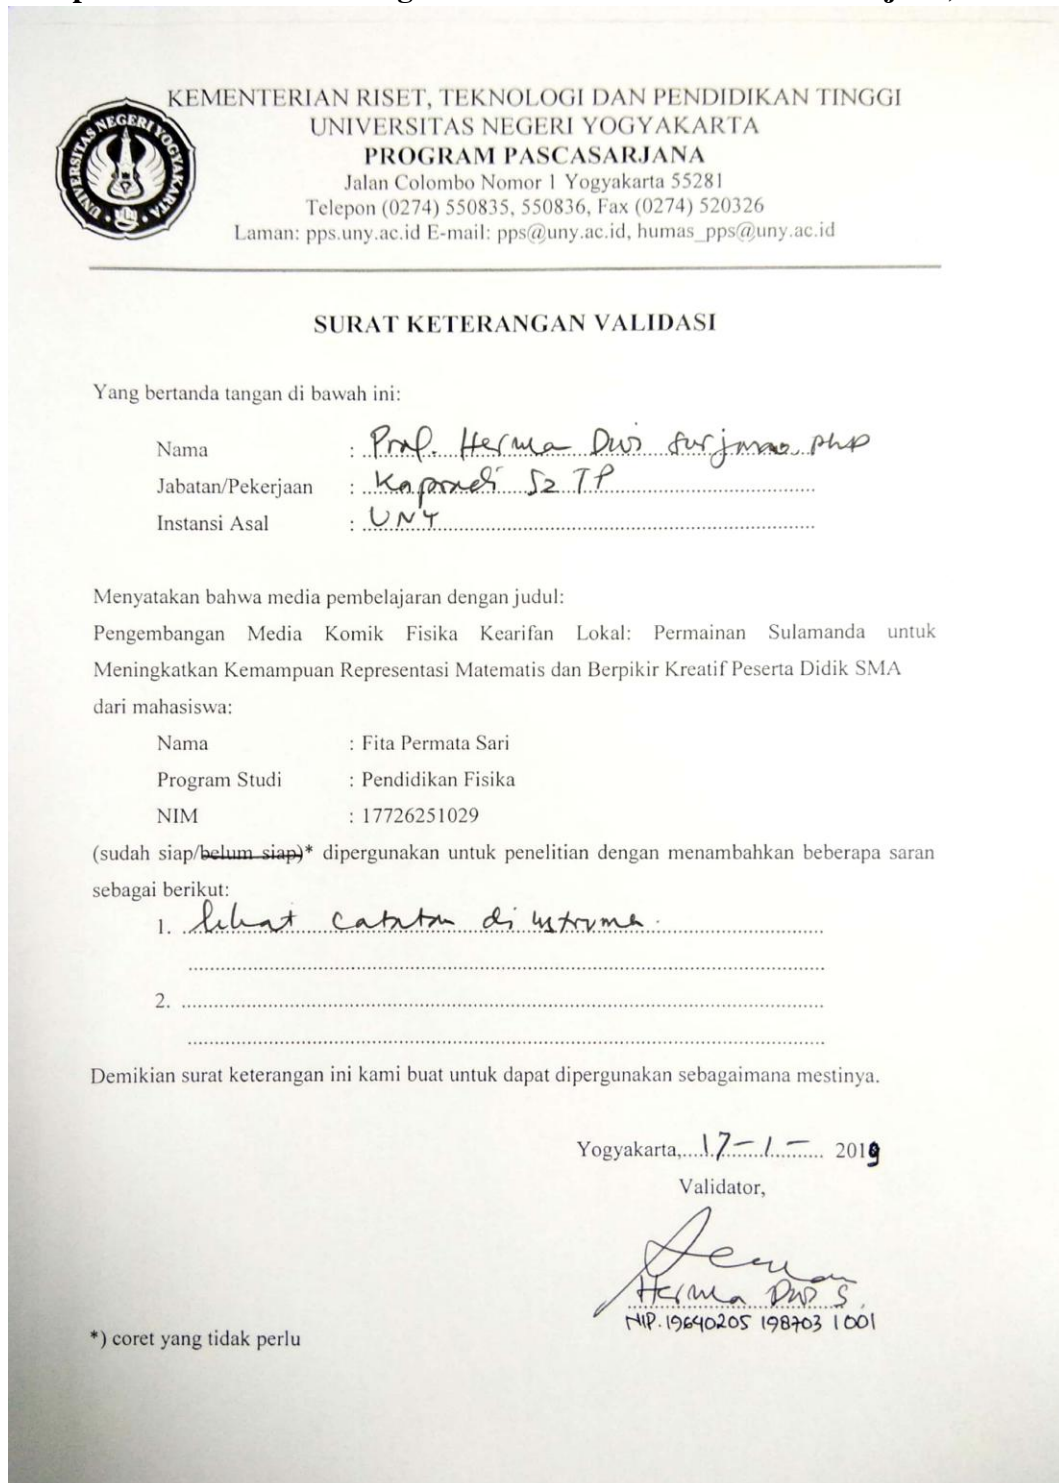 UNIVERSITAS NEGERI YOGYAKARTA
KEMENTERIAN RISET, TEKNOLOGI DAN PENDIDIKAN TINGGI
UNIVERSITAS NEGERI YOGYAKARTA
PROGRAM PASCASARJANA
Jalan Colombo Nomor 1 Yogyakarta 55281
Telepon (0274) 550835, 550836, Fax (0274) 520326
Laman: pps.uny.ac.id E-mail: pps@uny.ac.id, humas_pps@uny.ac.id
SURAT KETERANGAN VALIDASI
Yang bertanda tangan di bawah ini:
Nama : Prof. Herma Dwi Surjono, PhD
Jabatan/Pekerjaan : Kaprodi S2 TP
Instansi Asal : UNY
Menyatakan bahwa media pembelajaran dengan judul:
Pengembangan Media Komik Fisika Kearifan Lokal: Permainan Sulamanda untuk
Meningkatkan Kemampuan Representasi Matematis dan Berpikir Kreatif Peserta Didik SMA
dari mahasiswa:
Nama : Fita Permata Sari
Program Studi : Pendidikan Fisika
NIM : 17726251029
(sudah siap/belum siap)* dipergunakan untuk penelitian dengan menambahkan beberapa saran
sebagai berikut:
1. lihat catatan di instrumen.
2.
Demikian surat keterangan ini kami buat untuk dapat dipergunakan sebagaimana mestinya.
Yogyakarta, 17-1- 2019
Validator,
Herma Dwi S.
NIP. 19640205 198703 1 001
*) coret yang tidak perlu